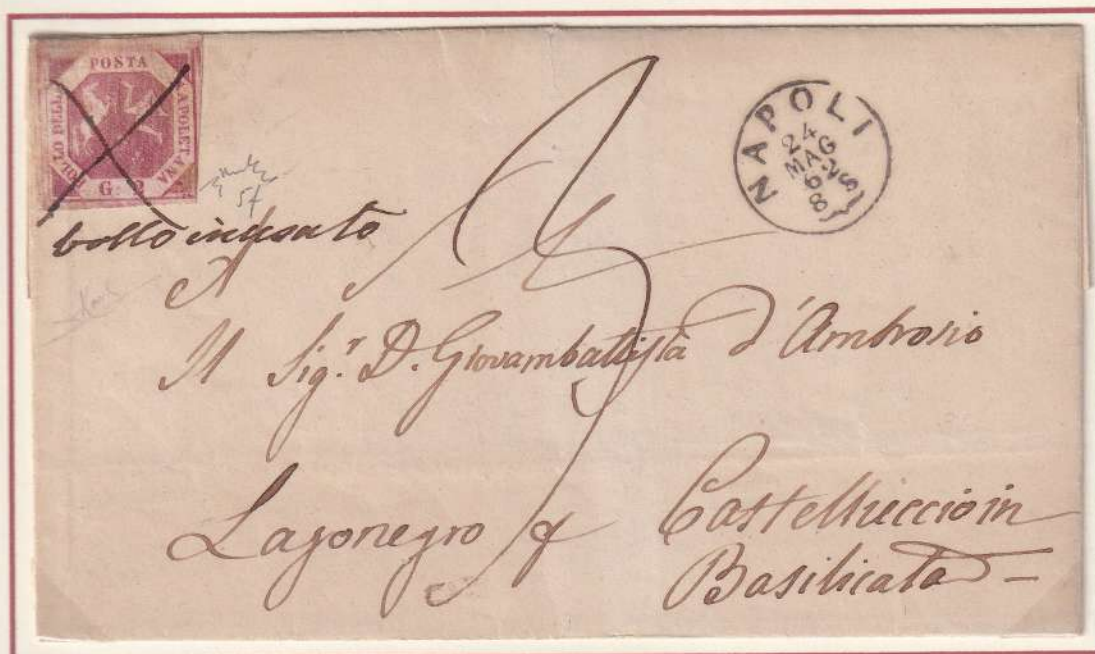 POSTA
BOLLO DELLA
NAPOLETANA
G. 2
NAPOLI
24
MAG
62
8 S
bollo
A
Il Sig.r D. Giovambattista d'Ambrosio
Lagonegro p Castelluccio in
Basilicata –